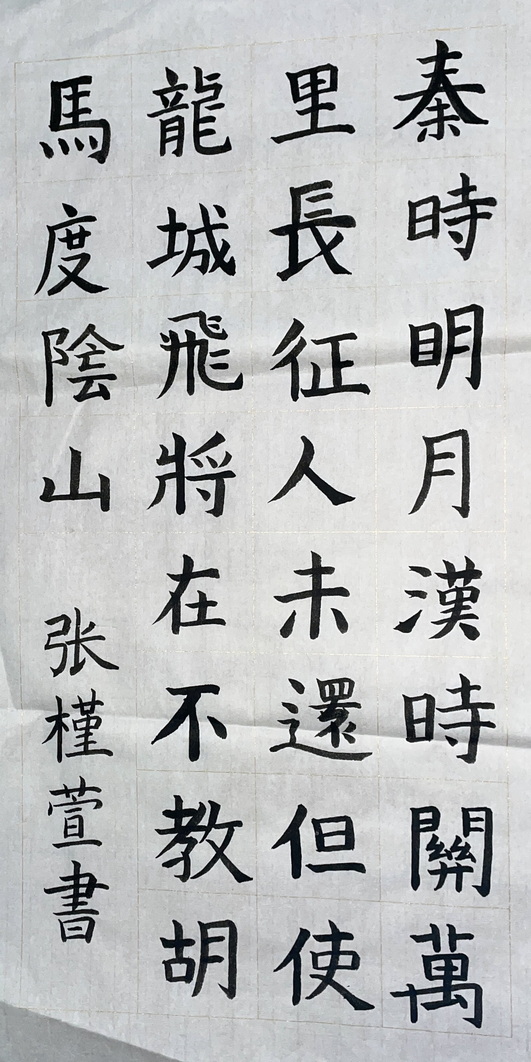 秦時明月漢時關萬
里長征人未還但使
龍城飛將在不教胡
馬度陰山
张槿萱書